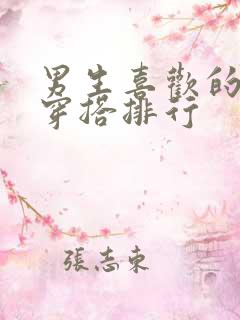 男生喜歡的
穿搭排行
張志東